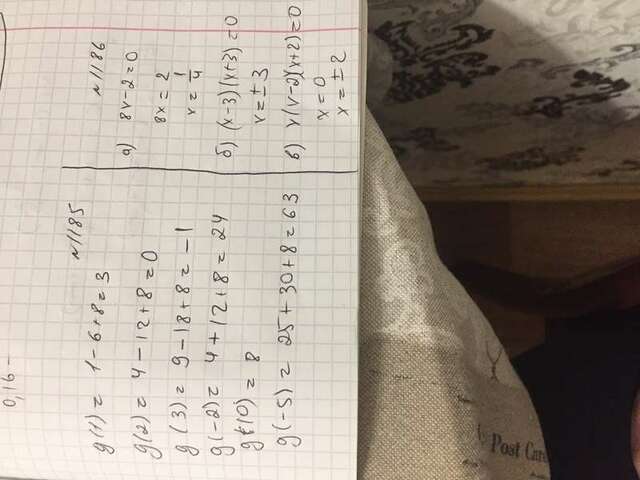 0,16-
№1185
g(1) = 1-6+8=3
g(2) = 4-12+8=0
g(3) = 9-18+8= -1
g(-2) = 4+12+8= 24
g(0) = 8
g(-5) = 25+30+8=63
№1186
а) 8x-2=0
8x = 2
x = 1/4
б) (x-3)(x+3)=0
x=±3
в) x(x-2)(x+2)=0
x=0
x=±2
Post Card